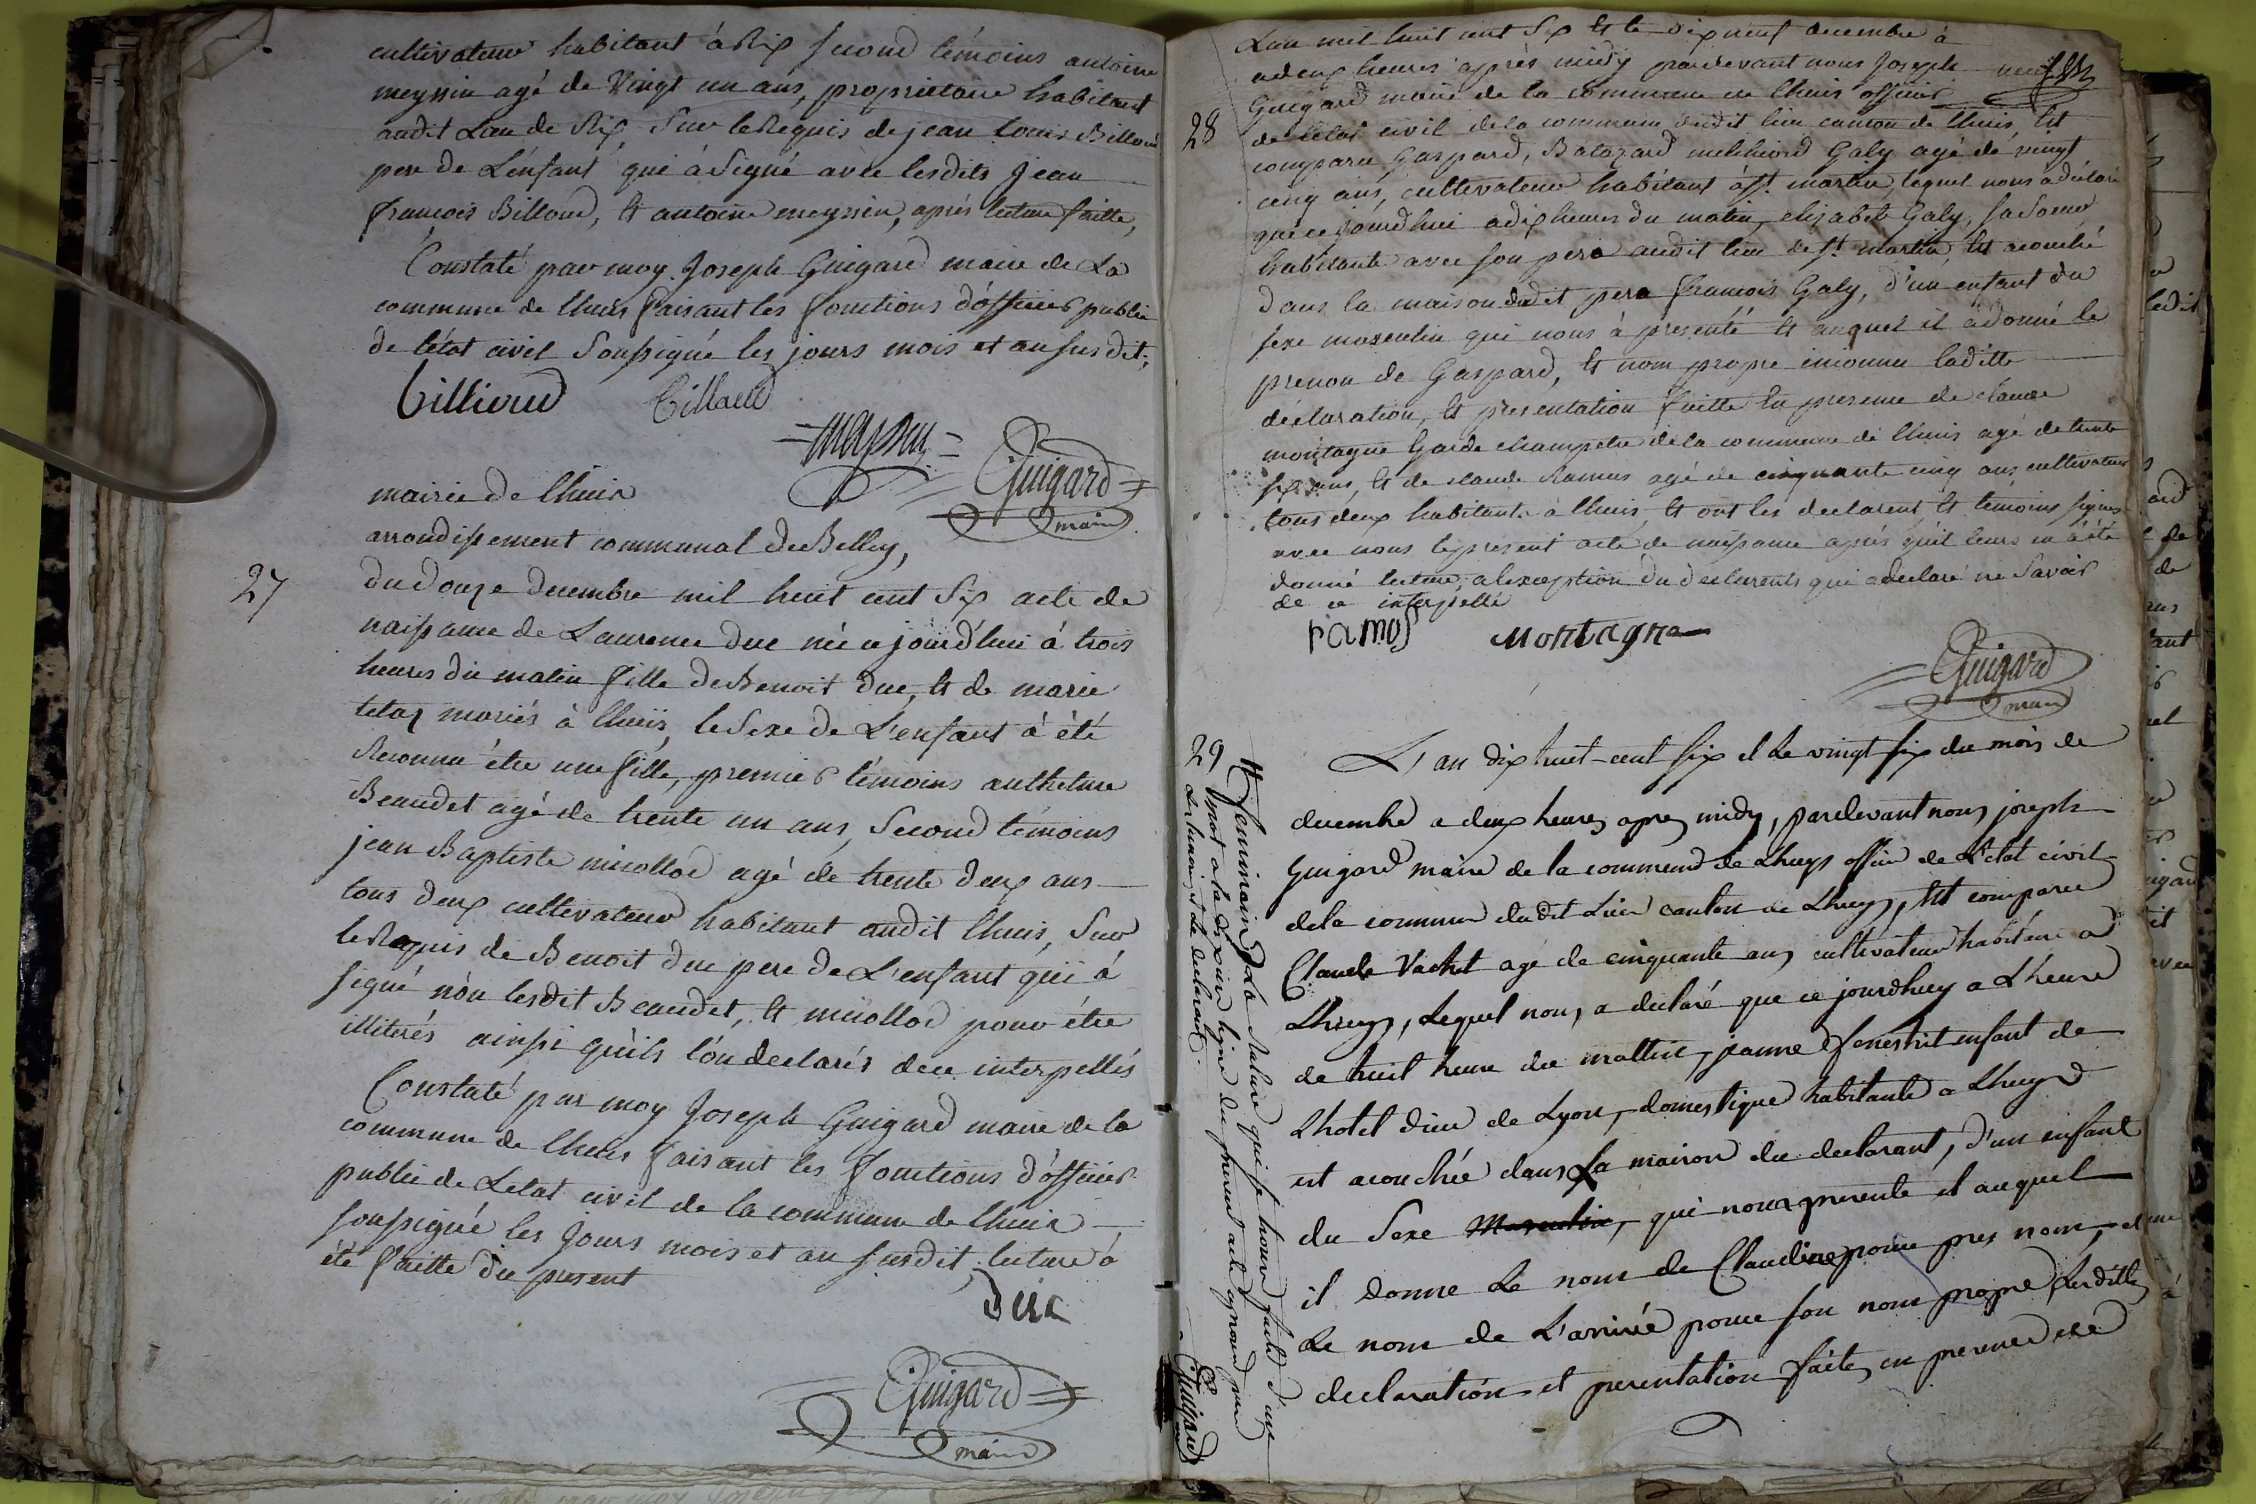 cultivateur habitant à Rix second témoins antoine
meyssin agé de Vingt un ans, proprietaire habitant
audit Lieu de Rix, Sur le Requis de jean louis Billioud
pere de L'enfant qui à Signé avec lesdits jean
françois Billoud, et antoine meyssin, après lecture faitte,
Constaté par moy Joseph Guigard maire de La
commune de lhuis faisant les fonctions d'officier public
de l'état civil Soussigné les jours mois et an susdit;
Billioud Billaud
meyssin
Guigard
maire
mairie de lhuis
arrondissement communal de Belley,
27
du douze decembre mil huit cent Six acte de
naissance de Laurence duc né ce jourd'hui à trois
heures du matin fille de Benoit duc, et de marie
tetaz mariés à lhuis, le Sexe de L'enfant à été
Reconnu être une fille, premier témoins anthelme
Beaudet agé de trente un ans, Second témoins
jean Baptiste micollod agé de trente deux ans
tous deux cultivateur habitant audit lhuis, Sur
le Requis de Benoit duc pere de L'enfant qui à
signé nón lesdit Beaudet, et micollod pour être
illiterés ainsi qu'ils l'ón declarés de ce interpellés
Constaté par moy Joseph Guigard maire de la
commune de lhuis faisant les fonctions d'officier
public de Letat civil de la commune de lhuis
soussigné les jours mois et an susdit, lecture à
été faitte du present
Duc
Guigard
maire
Lan mil huit cent Six et le dix neuf decembre à
adeux heures après midy pardevant nous Joseph
Guigard maire de la commune de lhuis officier
28
de l'état civil de la commune dudit lieu canton de lhuis, est
comparu Gaspard, Batazard melchiord Galy agé de vingt
cinq ans, cultivateur habitant à St. martin, lequel nous a déclaré
que ce jourdhui a dix heures du matin, elizabeth Galy, sa Soeur
habitante avec son pere audit lieu de St. martin, est acouché
dans la maison dudit pere françois Galy, d'un enfant du
sexe masculin qui nous à presenté et auquel il à donné le
prenon de Gaspard, et nom propre inconnu laditte
déclaration, et presentation faitte en presence de claude
montagne Garde champetre de la commune de lhuis agé de trente
six ans, et de claude Ramus agé de cinquante cinq ans cultivateur
tous deux habitants à lhuis, et ont les declarent et témoins signés
avec nous le present acte de naissance après qu'il leurs en à été
donné lecture, alexception du declarents qui a declaré ne Savoir
de ce interpellé
ramos Montagne
Guigard
maire
29
L'an dix huit-cent six et le vingt six du mois de
decembre a deux heures apres midy, pardevant nous joseph
Guigard maire de la commune de Lhuys officier de L'etat civil
de la commune dudit Lieu canton de Lhuys, est comparu
Claude Vachet agé de cinquante ans cultivateur habitant a
Lhuys, Lequel nous a declaré que ce jourdhuy a L'heure
de huit heure du mattin, jeanne enfant de
Lhotel dieu de Lyon, domestique habitante a Lhuys
est acouchée dans La maison du declarant, d'un enfant
du Sexe Masculin, qui nous presente et auquel
il donne Le nom de Claudine pour pres nom, et
Le nom de L'arrivé pour son nom propre Lesdittes
declaration et presentation faite en presence de
feminain La Rature qui se trouve
mot a la dixieme ligne du present acte aprouvé par
Le maire et Le declarant.
Guigard